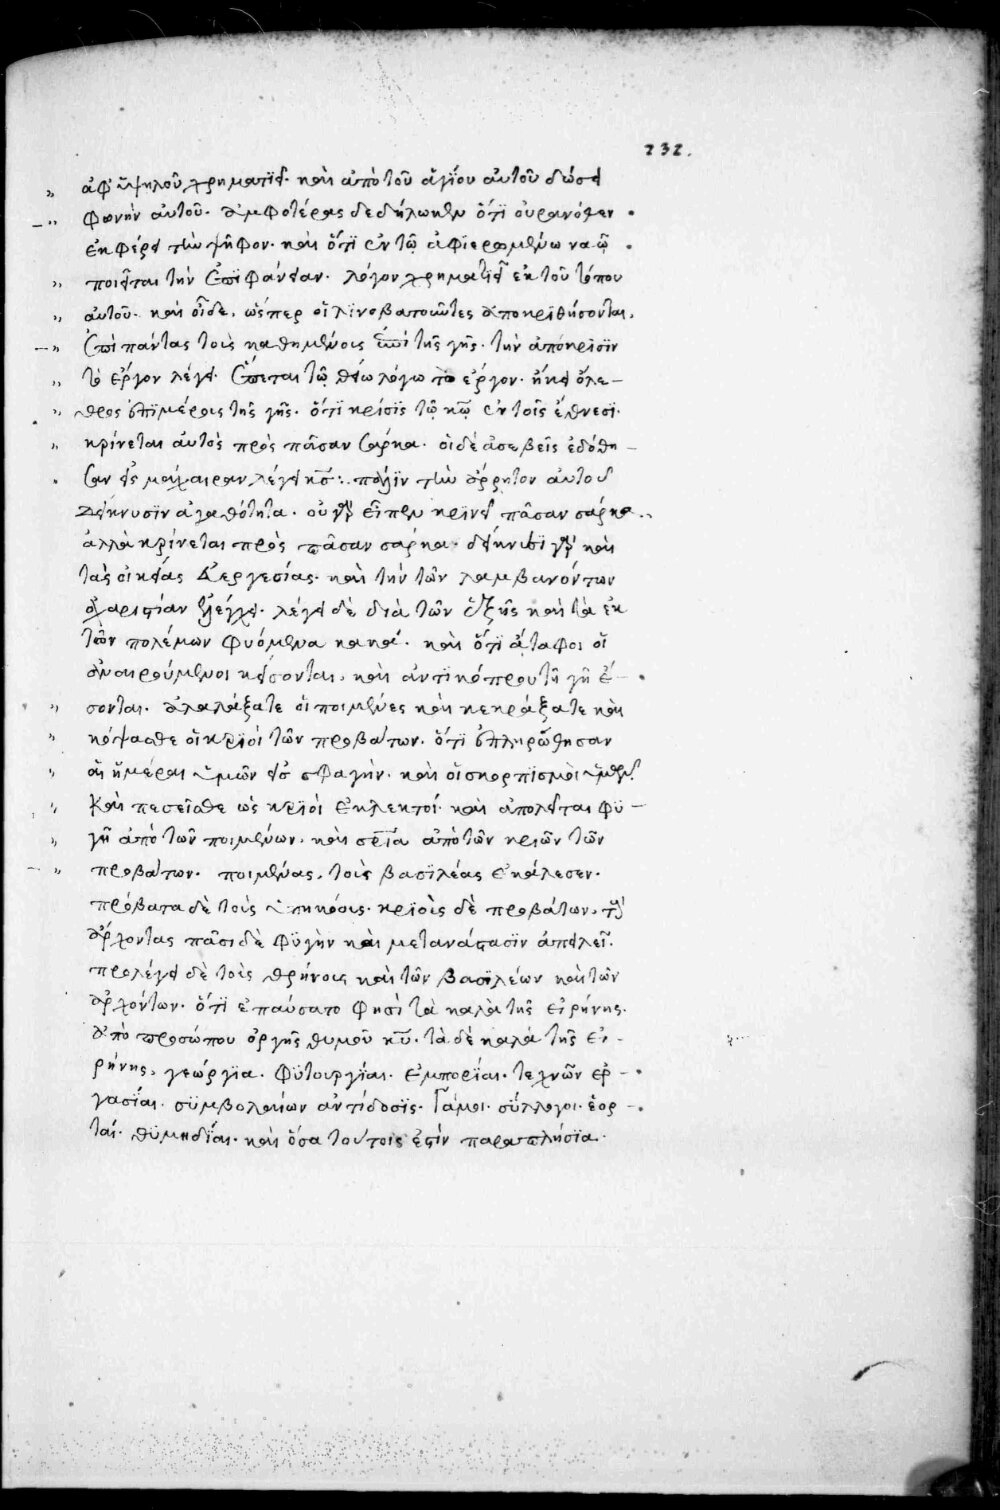 232.
ἀφ ὑψηλοῦ χρηματιεῖ. καὶ ἀπὸ τοῦ ἁγίου αὐτοῦ δώσει
φωνὴν αὐτοῦ. ἀμφοτέρας δεδήλωκεν ὅτι οὐρανόθεν
ἐκφέρει τὴν ψῆφον. καὶ ὅτι ἐν τῷ ἀφιερωμένω ναῷ
ποιεῖται τὴν ἐπιφάνειαν. λόγον χρηματιεῖ ἐκ τοῦ τόπου
αὐτοῦ. καὶ οἵδε, ὥσπερ οἱ ληνοβατοῦντες ἀποκριθήσονται.
Ἐπὶ πάντας τοὺς καθημένους ἐπὶ τῆς γῆς. τὴν ἀπόκρισιν
τὸ ἔργον λέγει. Ἕπεται τῷ θείω λόγω τὸ ἔργον. ἥκει ὄλε-
θρος ἐπὶ μέρος τῆς γῆς. ὅτι κρίσις τῷ κῷ ἐν τοῖς ἔθνεσι.
κρίνεται αὐτὸς πρὸς πᾶσαν σάρκα. οἱ δὲ ἀσεβεῖς ἐδόθη-
σαν εἰς μάχαιραν, λέγει κς: πάλιν τὴν ἄρρητον αὐτοῦ
δείκνυσιν ἀγαθότητα. οὐ γὰρ εἶπεν κρινεῖ πᾶσαν σάρκα.
ἀλλὰ κρίνεται πρὸς πᾶσαν σάρκα. δείκνυσι γὰρ καὶ
τὰς οἰκείας εὐεργεσίας. καὶ τὴν τῶν λαμβανόντων
ἀχαριστίαν ἐλέγχει. λέγει δὲ διὰ τῶν ἑξῆς καὶ τὰ ἐκ
τῶν πολέμων φυόμενα κακά. καὶ ὅτι ἄταφοι οἱ
ἀναιρούμενοι κείσονται, καὶ ἀντὶ κόπρου τῆ γῆ ἔ-
σονται. ἀλαλάξατε οἱ ποιμένες καὶ κεκράξατε καὶ
κόψασθε οἱ κριοὶ τῶν προβάτων. ὅτι ἐπληρώθησαν
αἱ ἡμέραι ὑμῶν εἰς σφαγὴν. καὶ οἱ σκορπισμοὶ ὑμῶν.
Καὶ πεσεῖσθε ὡς κριοὶ ἐκλεκτοί. καὶ ἀπολεῖται φυ-
γῆ ἀπὸ τῶν ποιμένων. καὶ σρία ἀπὸ τῶν κριῶν τῶν
προβάτων. ποιμένας, τοὺς βασιλέας ἐκάλεσεν.
πρόβατα δὲ τοὺς ὑπηκόους. κριοὺς δὲ προβάτων, τοὺς
ἄρχοντας πᾶσι δὲ φυγὴν καὶ μετανάστασιν ἀπειλεῖ.
προλέγει δὲ τοὺς θρήνους καὶ τῶν βασιλέων καὶ τῶν
ἀρχόντων. ὅτι ἐπαύσατο φησὶ τὰ καλὰ τῆς εἰρήνης.
ἀπὸ προσώπου ὀργῆς θυμοῦ κυ. τὰ δὲ καλὰ τῆς εἰ-
ρήνης, γεώργια. φυτουργίαι. ἐμπορίαι. τεχνῶν ἐρ-
γασίαι. συμβολαίων ἀντίδοσις. Γάμοι. σύλλογοι. ἑορ-
ταί. θυμηδίαι. καὶ ὅσα τούτοις ἐστὶν παραπλήσια.